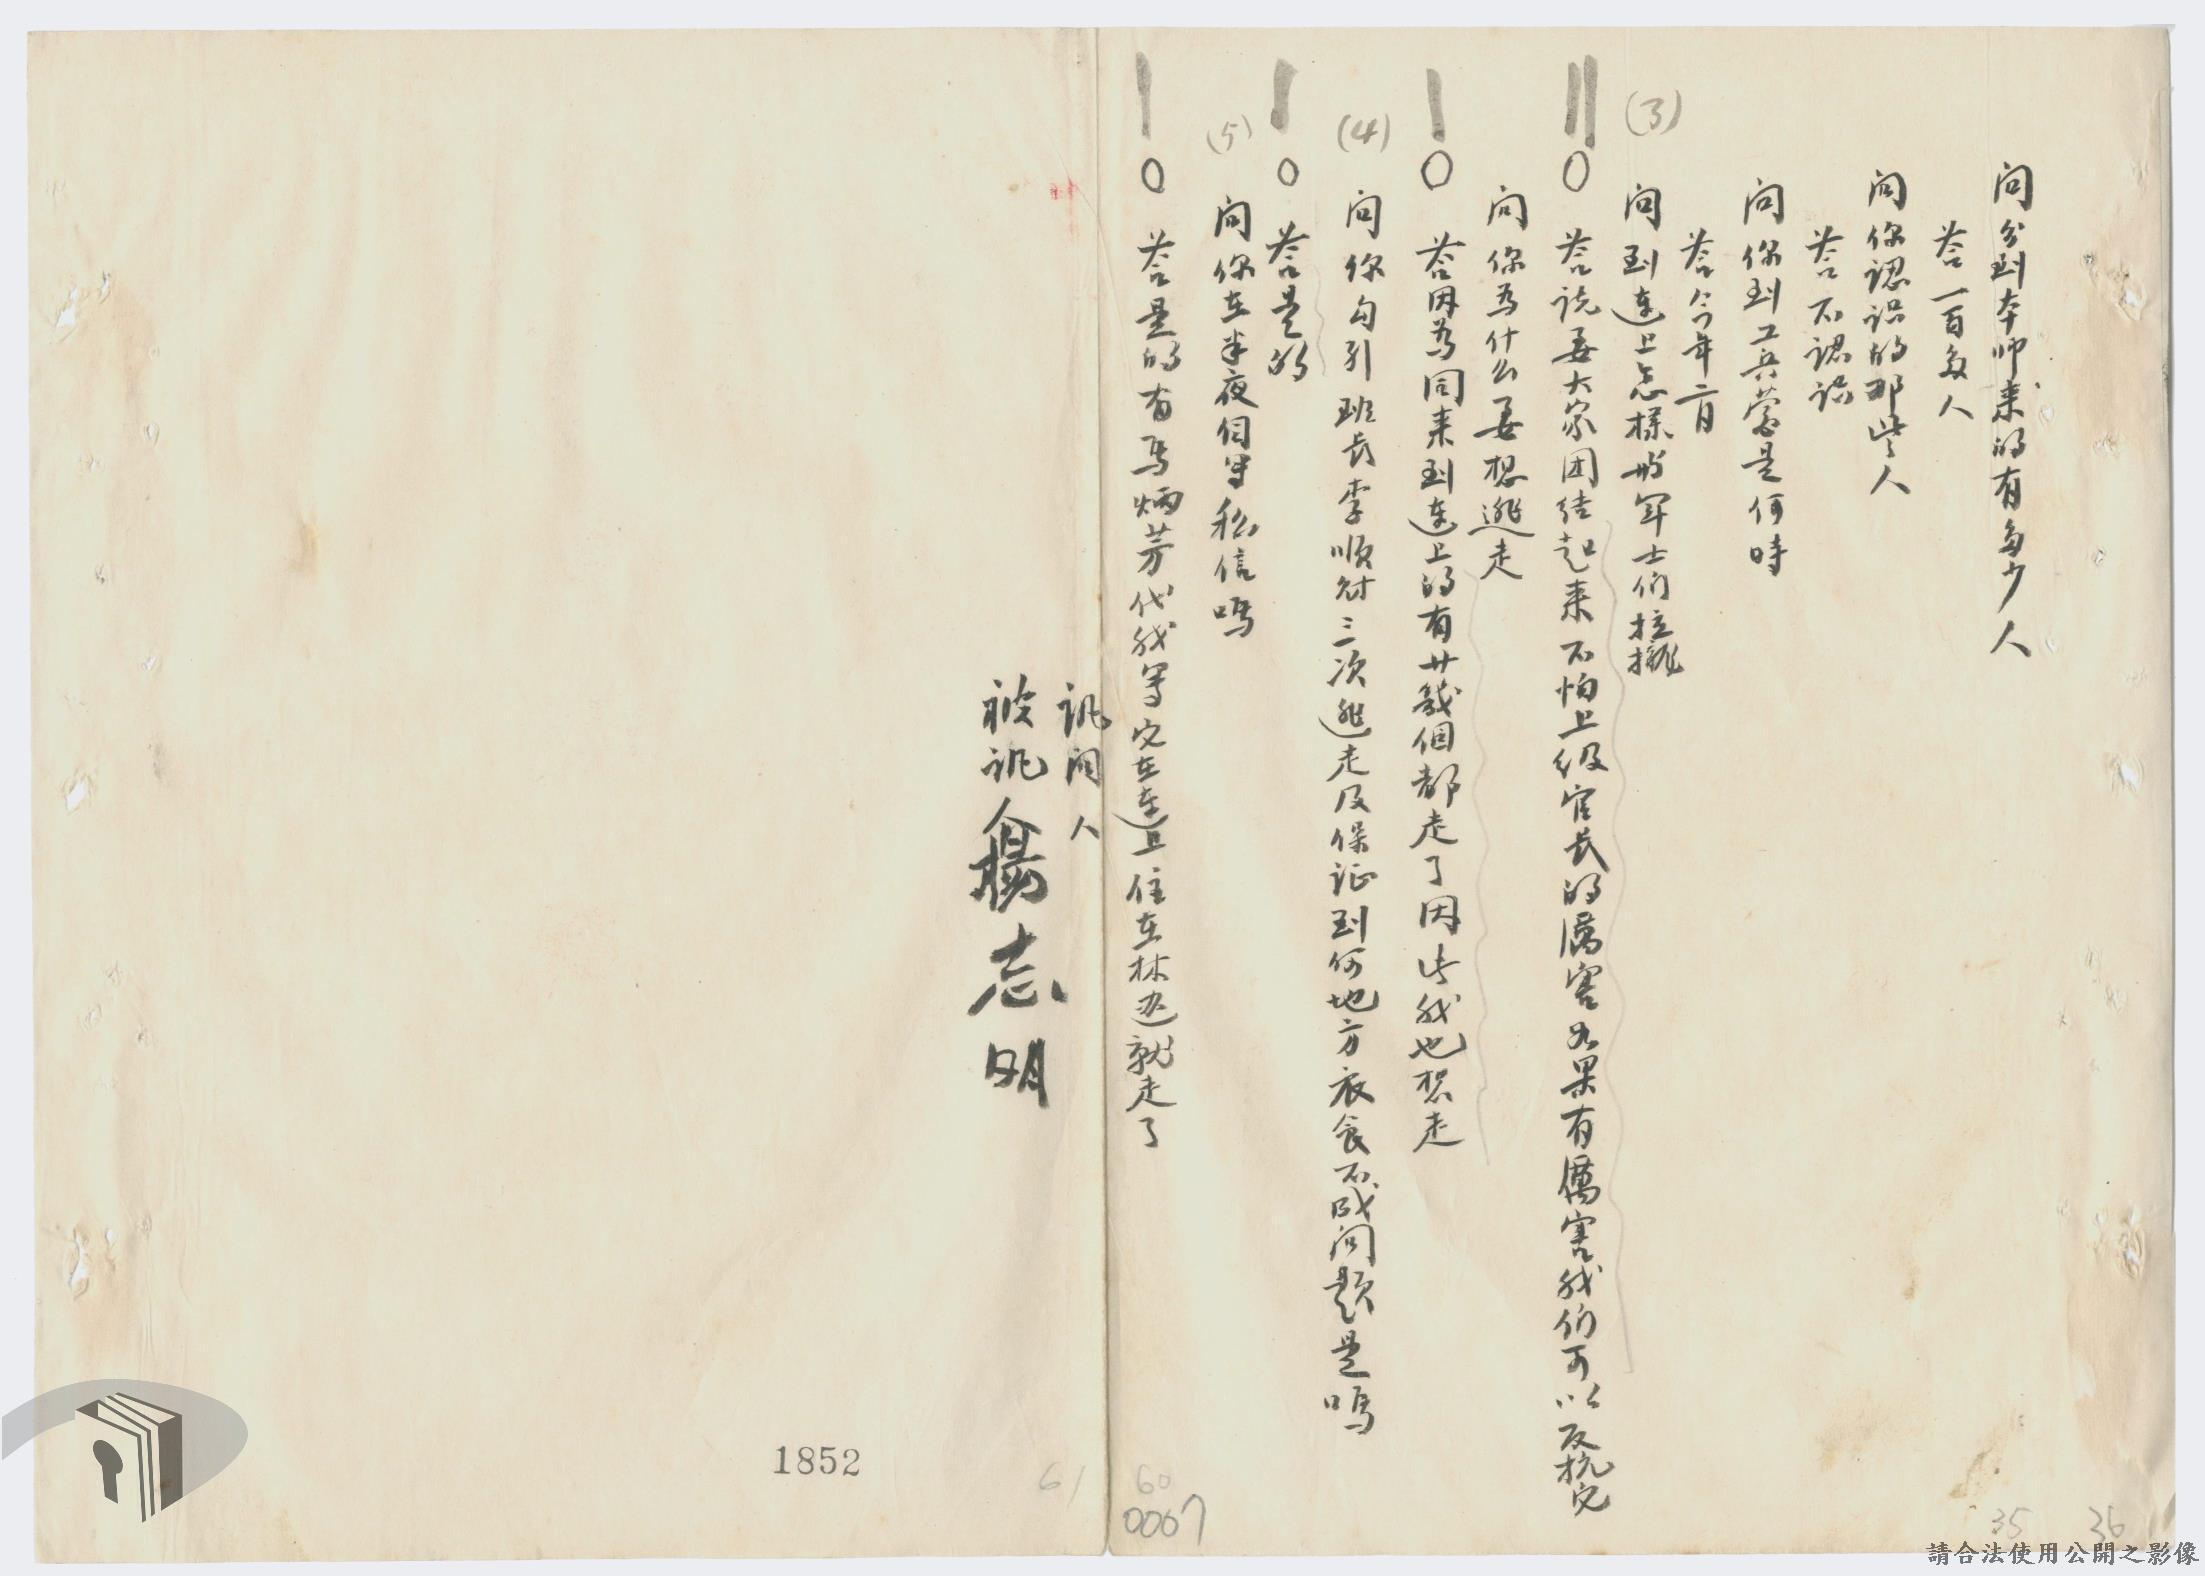 問分到本师来的有多少人
答一百多人
問你認识的那些人
答不認识
問你到工兵营是何時
答今年二月
(3)
問到連上怎樣對军士们拉攏
答说要大家团结起来不怕上级官长的厲害如果有厲害我们可以反抗它
問你為什么要想逃走
答因為同来到連上的有廿幾個都走了因此我也想走
(4)
問你勾引班长李顺财三次逃走及保证到何地方衣食不成问题是嗎
答是的
(5)
問你在半夜间写私信嗎
答是的有馬炳芳代我写它在連上住在林边就走了
訊问人
被訊人楊志明
1852
61
60
0067
35
36
請合法使用公開之影像